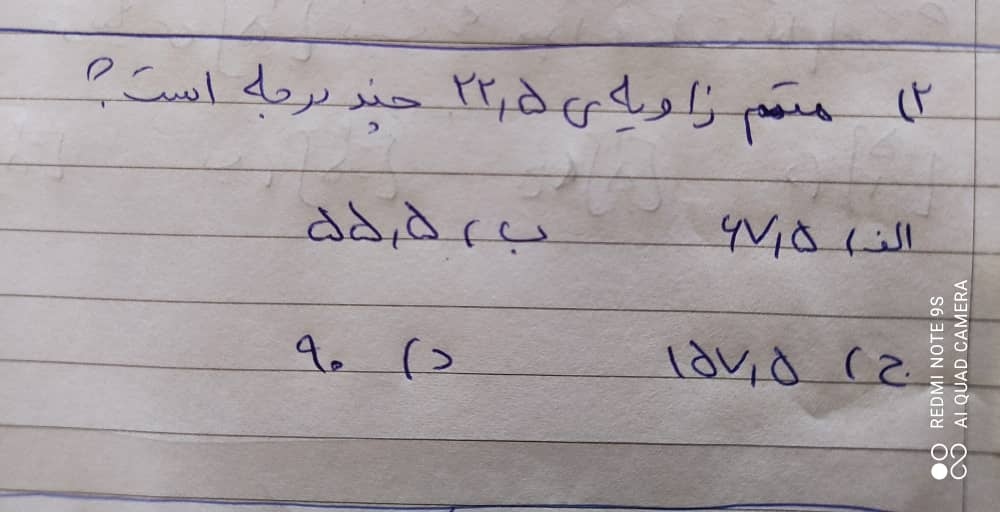 ۲) متمم زاویه ی ۲۲,۵ چند درجه است؟
الف) ۶۷,۵ ب) ۵۵,۵
ج) ۱۵۷,۵ د) ۹۰
REDMI NOTE 9S
AI QUAD CAMERA